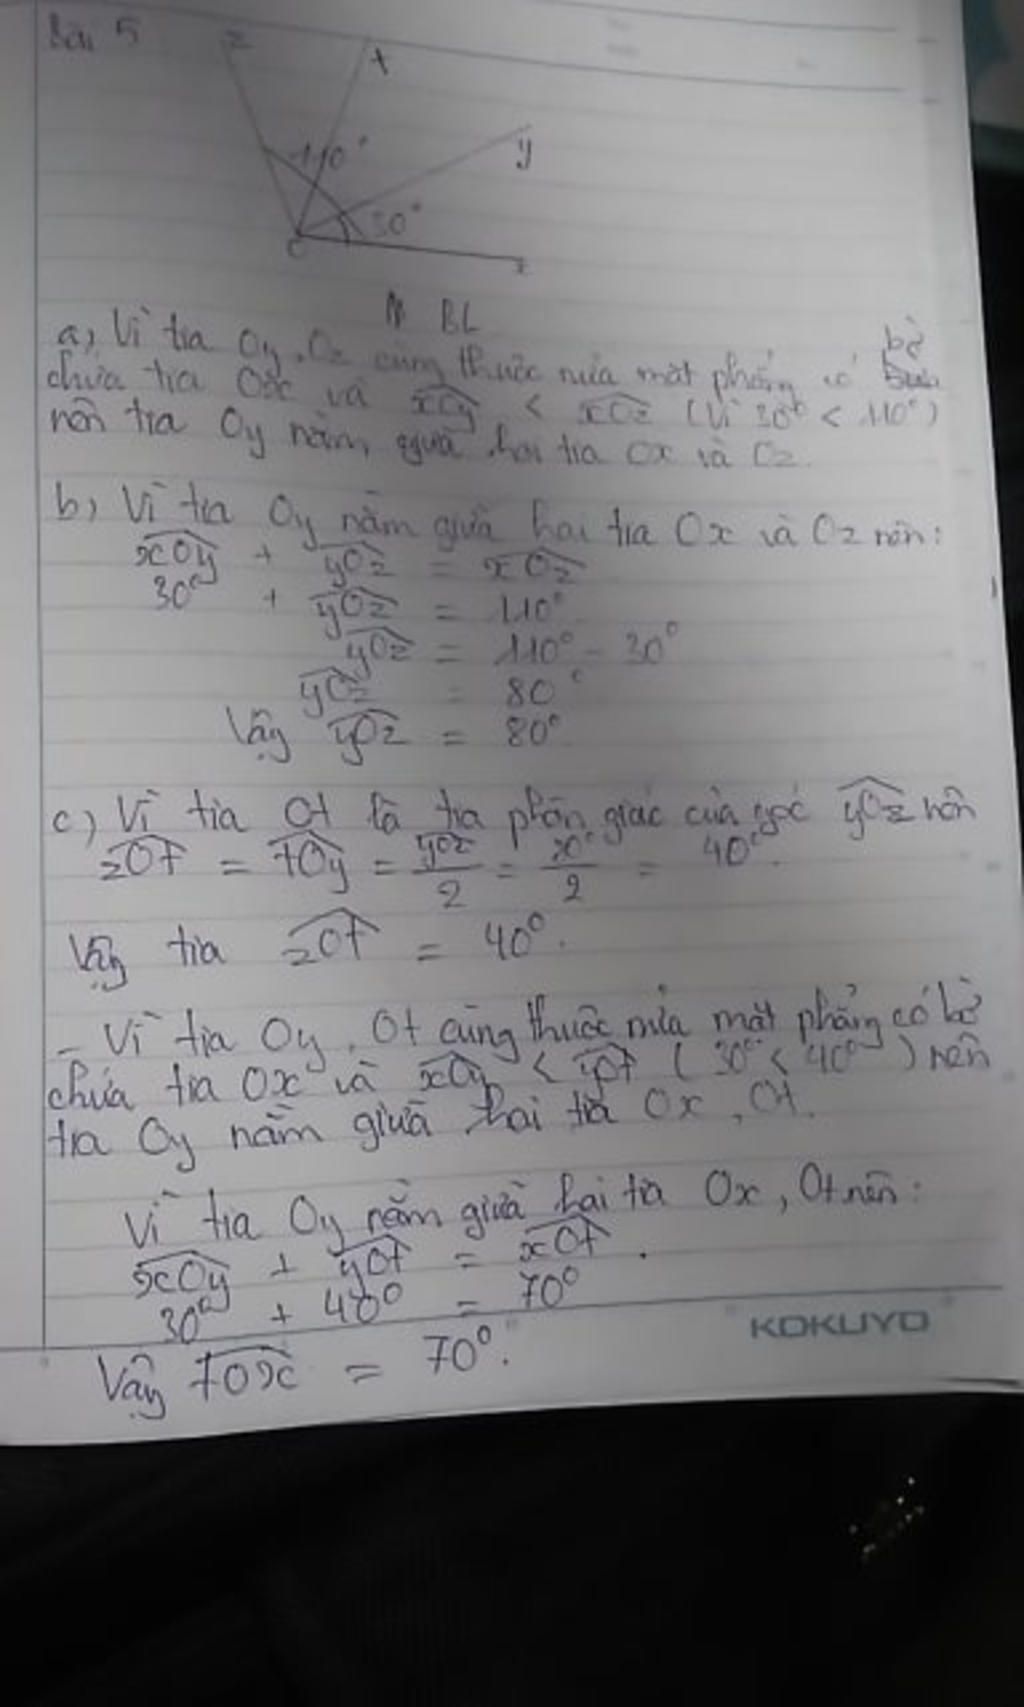 Bài 5
z
t
110°
y
30°
O
x
BL
a) Vì tia Oy, Oz cùng thuộc nửa mặt phẳng có bờ
chứa tia Ox và xOy < xOz (Vì 30° < 110°)
nên tia Oy nằm giữa hai tia Ox và Oz.
b) Vì tia Oy nằm giữa hai tia Ox và Oz nên:
xOy + yOz = xOz
30° + yOz = 110°
yOz = 110° - 30°
yOz = 80°
Vậy yOz = 80°
c) Vì tia Ot là tia phân giác của góc yOz nên
zOt = tOy = yOz/2 = 80°/2 = 40°.
Vậy tia zOt = 40°.
- Vì tia Oy, Ot cùng thuộc nửa mặt phẳng có bờ
chứa tia Ox và xOy < yOt (30° < 40°) nên
tia Oy nằm giữa hai tia Ox, Ot.
Vì tia Oy nằm giữa hai tia Ox, Ot nên:
xOy + yOt = xOt.
30° + 40° = 70°
KOKUYO
Vậy tOx = 70°.